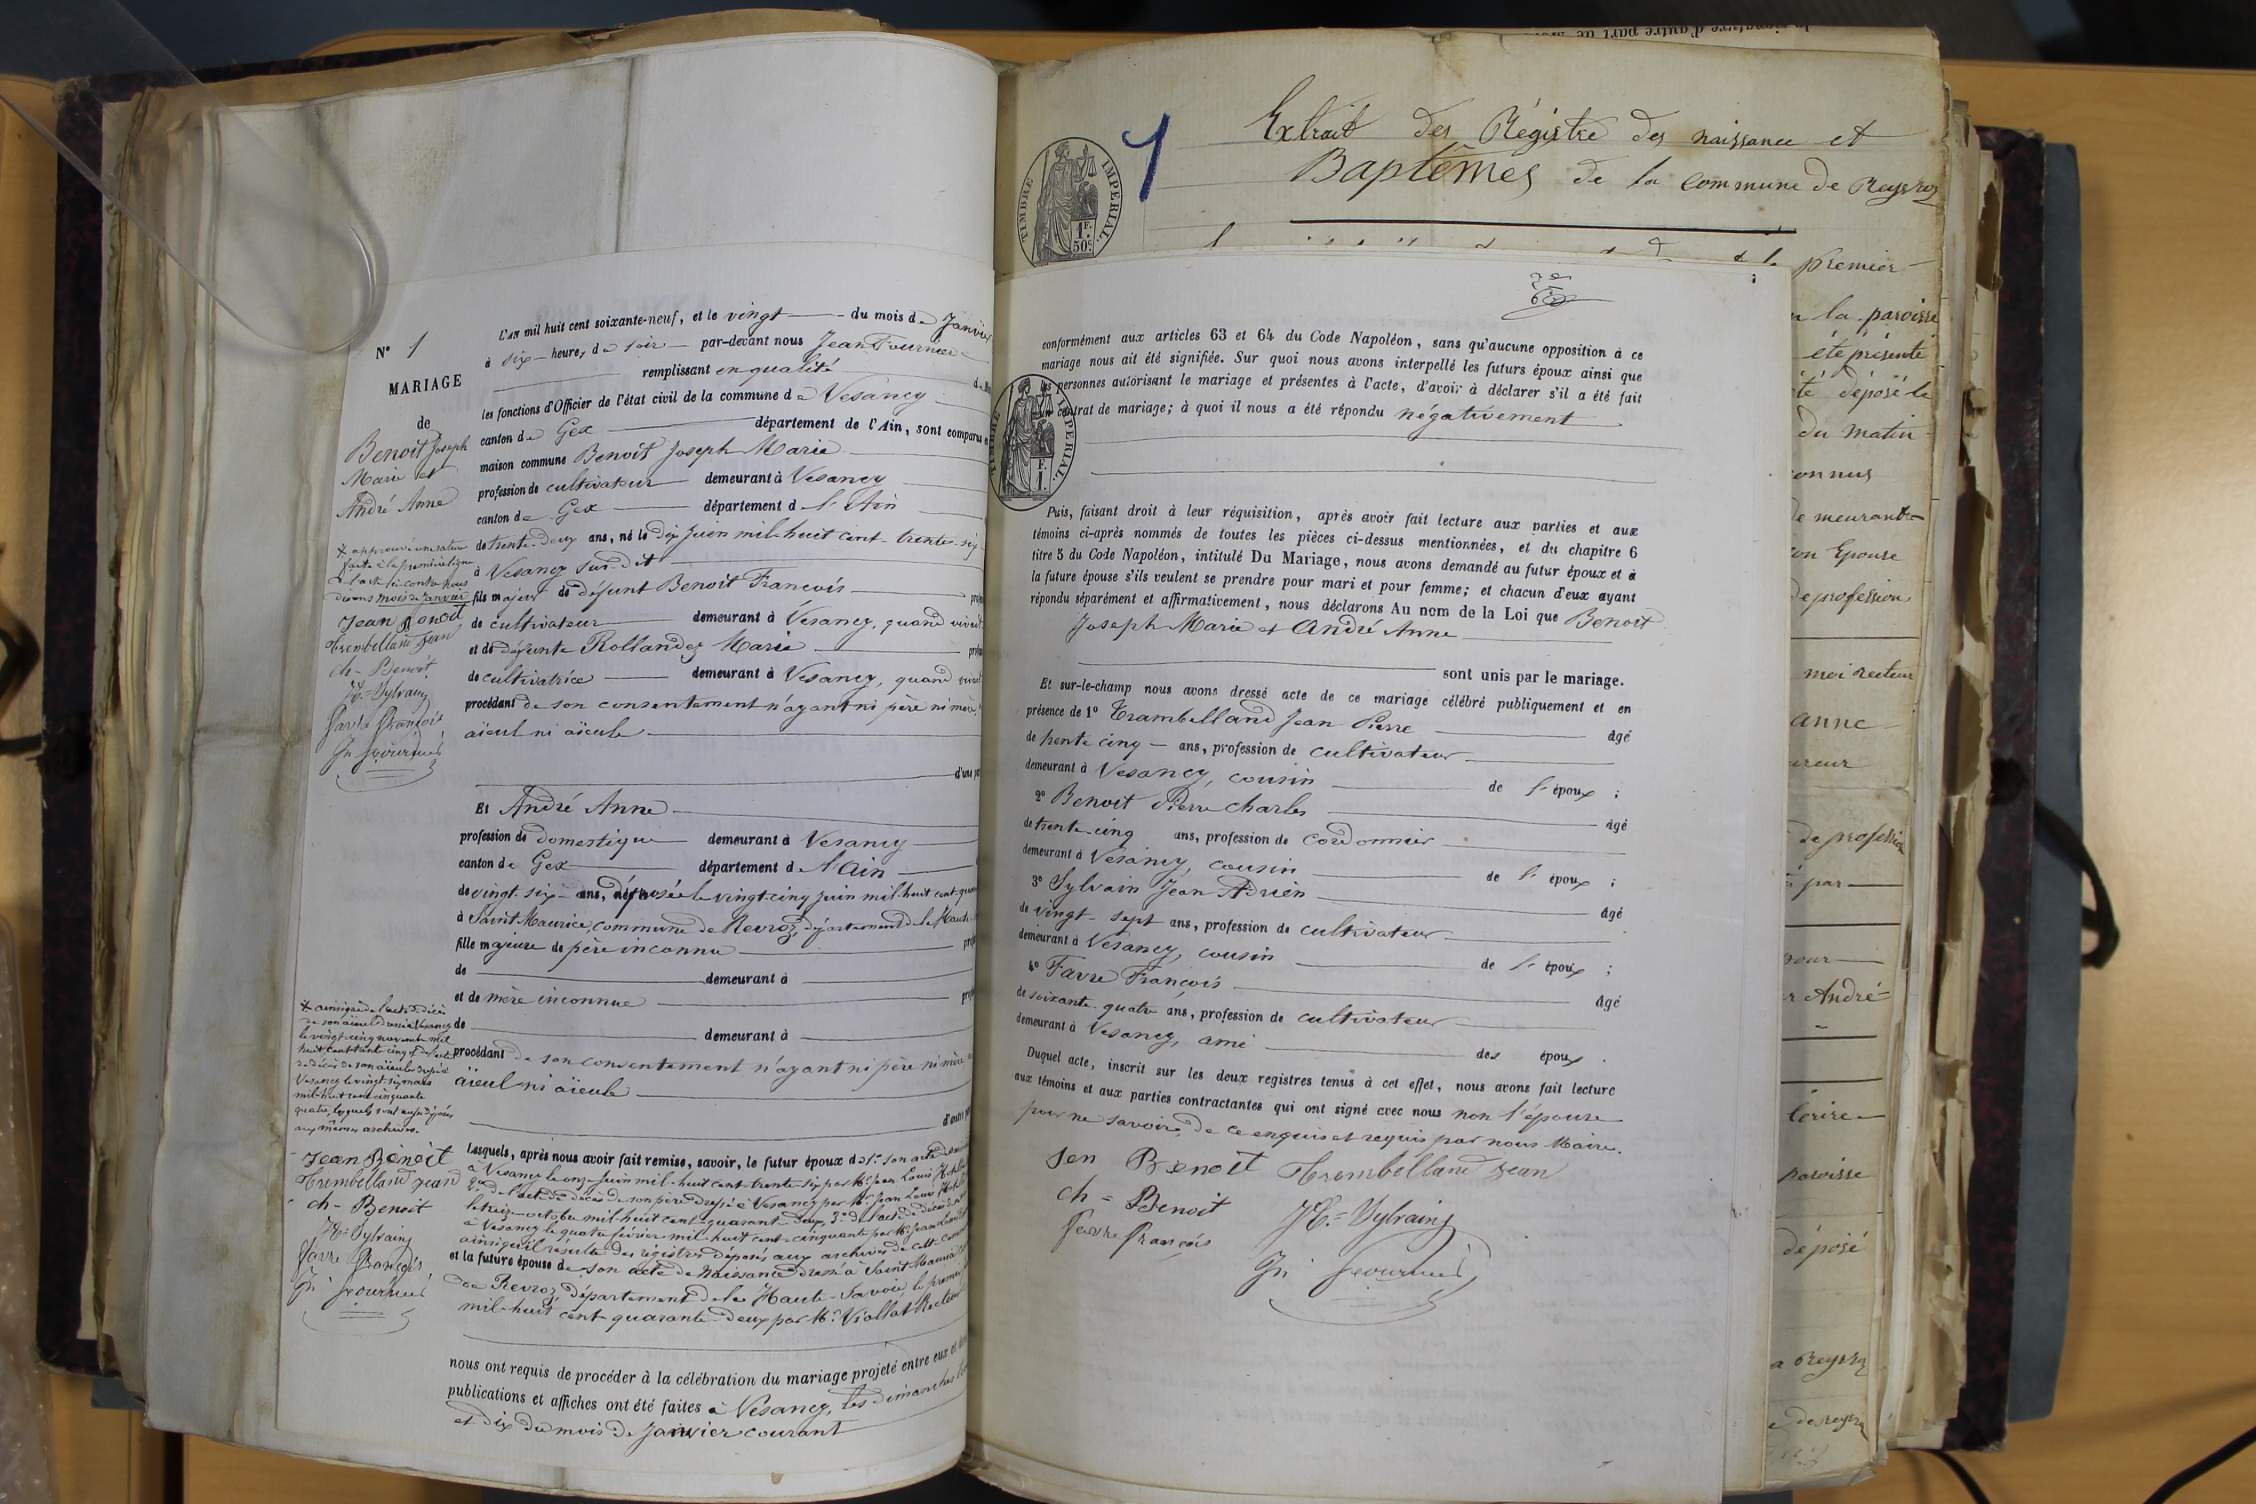 N° 1
MARIAGE
de
Benoit Joseph
Marie et
André Anne
L'AN mil huit cent soixante-neuf, et le vingt du mois de Janvier
à six heures du soir par-devant nous Jean Fournier
remplissant en qualité
les fonctions d'Officier de l'état civil de la commune de Vesancy
canton de Gex département de l'Ain, sont comparus
maison commune Benoît Joseph Marie
profession de cultivateur demeurant à Vesancy
canton de Gex département de l'Ain
de trente-deux ans, né le dix Juin mil-huit cent-trente-six
à Vesancy susdit
fils majeur de défunt Benoit François
de cultivateur demeurant à Vesancy, quand vivait
et de défunte Rollandez Marie
de cultivatrice demeurant à Vesancy, quand vivait
procédant de son consentement n'ayant ni père ni mère
aïeul ni aïeule
Et André Anne
profession de domestique demeurant à Vesancy
canton de Gex département de l'Ain
de vingt-six ans, déposée le vingt-cinq juin mil-huit cent
à Saint Maurice, commune de Revroz, département de la Haute
fille majeure de père inconnu
de demeurant à
et de mère inconnue
de demeurant à
procédant de son consentement n'ayant ni père ni mère
aïeul ni aïeule
Lesquels, après nous avoir fait remise, savoir, le futur époux de 1° son acte de
à Vesancy le onze Juin mil-huit cent-trente-six par Mr Jean Louis
2° de l'acte de décès de son père dressé à Vesancy par Mr Jean Louis
le treize octobre mil-huit cent-quarante-deux, 3° de l'acte de décès de
à Vesancy le quatre février mil-huit cent-cinquante par Mr Jean Louis
ainsi qu'il résulte des registres déposés aux archives de cette
et la future épouse de son acte de Naissance dressé à Saint Maurice
de Revroz, département de la Haute-Savoie, le premier
mil-huit cent quarante-deux par Mr Viollat Recteur
nous ont requis de procéder à la célébration du mariage projeté entre eux et
publications et affiches ont été faites à Vesancy, les dimanches
et dix du mois de Janvier courant
* approuvé une rature
faite à la première ligne
de l'acte ci-contre nous
disons mois de janvier
Jean Benoit
Trembelland Jean
ch- Benoit
JA= Sylvain
Favre François
Jn Fournier
* ainsi que de l'acte de décès
de son aïeul dressé à Vesancy
le vingt cinq novembre mil
huit cent trente cinq et de l'acte
de décès de son aïeule dressé à
Vesancy le vingt six mars
mil-huit cent cinquante
quatre, lesquels sont aussi déposés
aux mêmes archives.
Jean Benoit
Trembelland Jean
ch- Benoit
JA= Sylvain
Favre François
Jn Fournier
Extrait des Régistre des naissance et
Baptêmes de la commune de Reyvroz
1
TIMBRE IMPERIAL
1F. 50c
conformément aux articles 63 et 64 du Code Napoléon, sans qu'aucune opposition à ce
mariage nous ait été signifiée. Sur quoi nous avons interpellé les futurs époux ainsi que
les personnes autorisant le mariage et présentes à l'acte, d'avoir à déclarer s'il a été fait
un contrat de mariage; à quoi il nous a été répondu négativement
TIMBRE IMPERIAL
F. 1.
Puis, faisant droit à leur réquisition, après avoir fait lecture aux parties et aux
témoins ci-après nommés de toutes les pièces ci-dessus mentionnées, et du chapitre 6
titre 5 du Code Napoléon, intitulé Du Mariage, nous avons demandé au futur époux et à
la future épouse s'ils veulent se prendre pour mari et pour femme; et chacun d'eux ayant
répondu séparément et affirmativement, nous déclarons Au nom de la Loi que Benoit
Joseph Marie et André Anne
sont unis par le mariage.
Et sur-le-champ nous avons dressé acte de ce mariage célébré publiquement et en
présence de 1° Trambelland Jean Pierre âgé
de trente cinq ans, profession de cultivateur
demeurant à Vesancy, cousin de l'époux ;
2° Benoit Pierre Charles âgé
de trente-cinq ans, profession de cordonnier
demeurant à Vesancy, cousin de l'époux ;
3° Sylvain Jean Adrien âgé
de vingt-sept ans, profession de cultivateur
demeurant à Vesancy, cousin de l'époux ;
4° Favre François âgé
de soixante-quatre ans, profession de cultivateur
demeurant à Vesancy, ami des époux.
Duquel acte, inscrit sur les deux registres tenus à cet effet, nous avons fait lecture
aux témoins et aux parties contractantes qui ont signé avec nous non l'épouse
pour ne savoir, de ce enquis et requis par nous Maire.
Jen Benoit Trembelland Jean
ch= Benoit JA= Sylvain
favre françois
Jn Fournier
premier
la paroisse
été présenté
été déposé le
du matin
connus
demeurant
son Epouse
de profession
moi recteur
anne
de profession
par
André
écrire
paroisse
déposé
a Reyvroz
de reyvroz